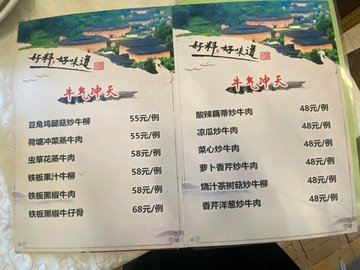 好料,好味道
牛气冲天
豆角鸡腿菇炒牛肉 55元/例
荷塘冲菜蒸牛肉 55元/例
虫草花蒸牛肉 58元/例
铁板果汁牛柳 58元/例
铁板黑椒牛肉 58元/例
铁板黑椒牛仔骨 68元/例
好料,好味道
牛气冲天
酸辣藕蒂炒牛肉 48元/例
凉瓜炒牛肉 48元/例
菜心炒牛肉 48元/例
萝卜香芹炒牛肉 48元/例
烧汁茶树菇炒牛柳 48元/例
香芹洋葱炒牛肉 48元/例